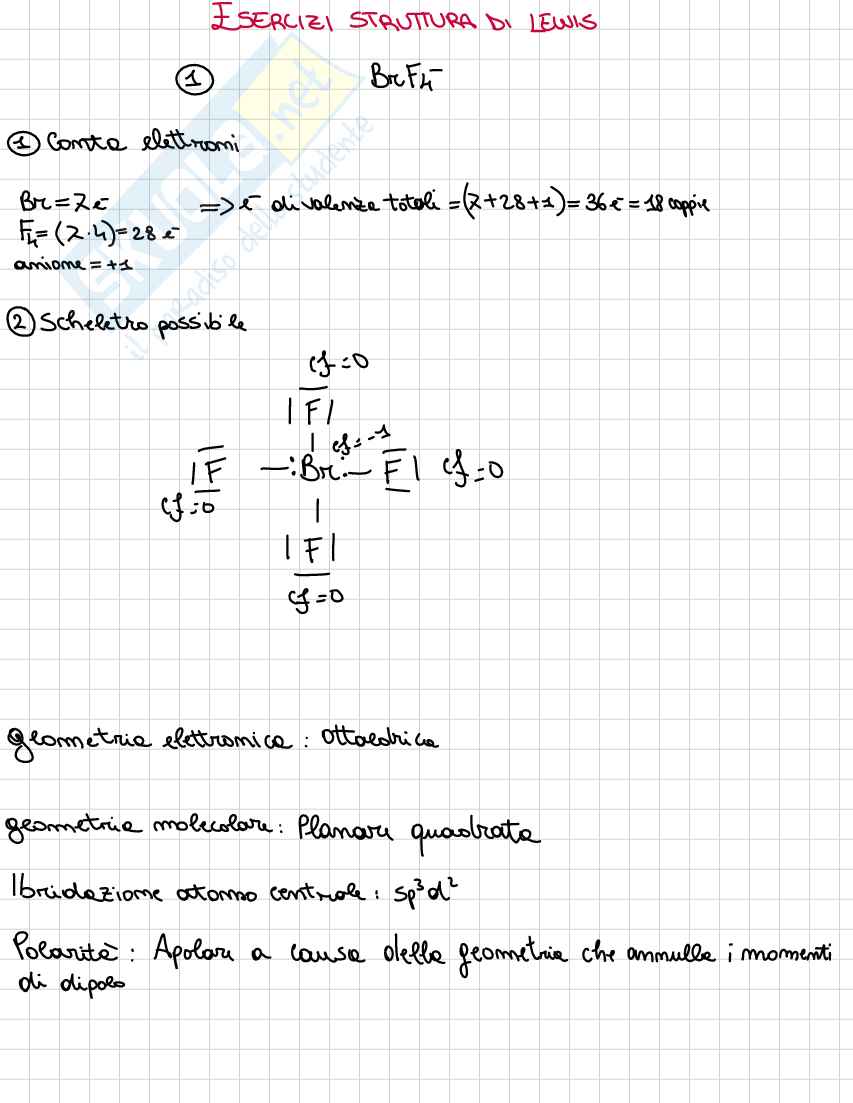 ESERCIZI STRUTTURA DI LEWIS
① BrF4⁻
① Conta elettroni
Br = 7e⁻ => e⁻ di valenza totali = (7+28+1) = 36e⁻ = 18 coppie
F4 = (7·4) = 28 e⁻
anione = +1
② Scheletro possibile
cf = 0
|F|
| cf = -1
|F —:Br:— F| cf = 0
cf = 0
|
|F|
cf = 0
geometria elettronica : ottaedrica
geometria molecolare : Planare quadrata
Ibridazione atomo centrale : sp³d²
Polarità : Apolare a causa della geometria che annulla i momenti
di dipolo
SKUOLA.net
il paradiso dello studente